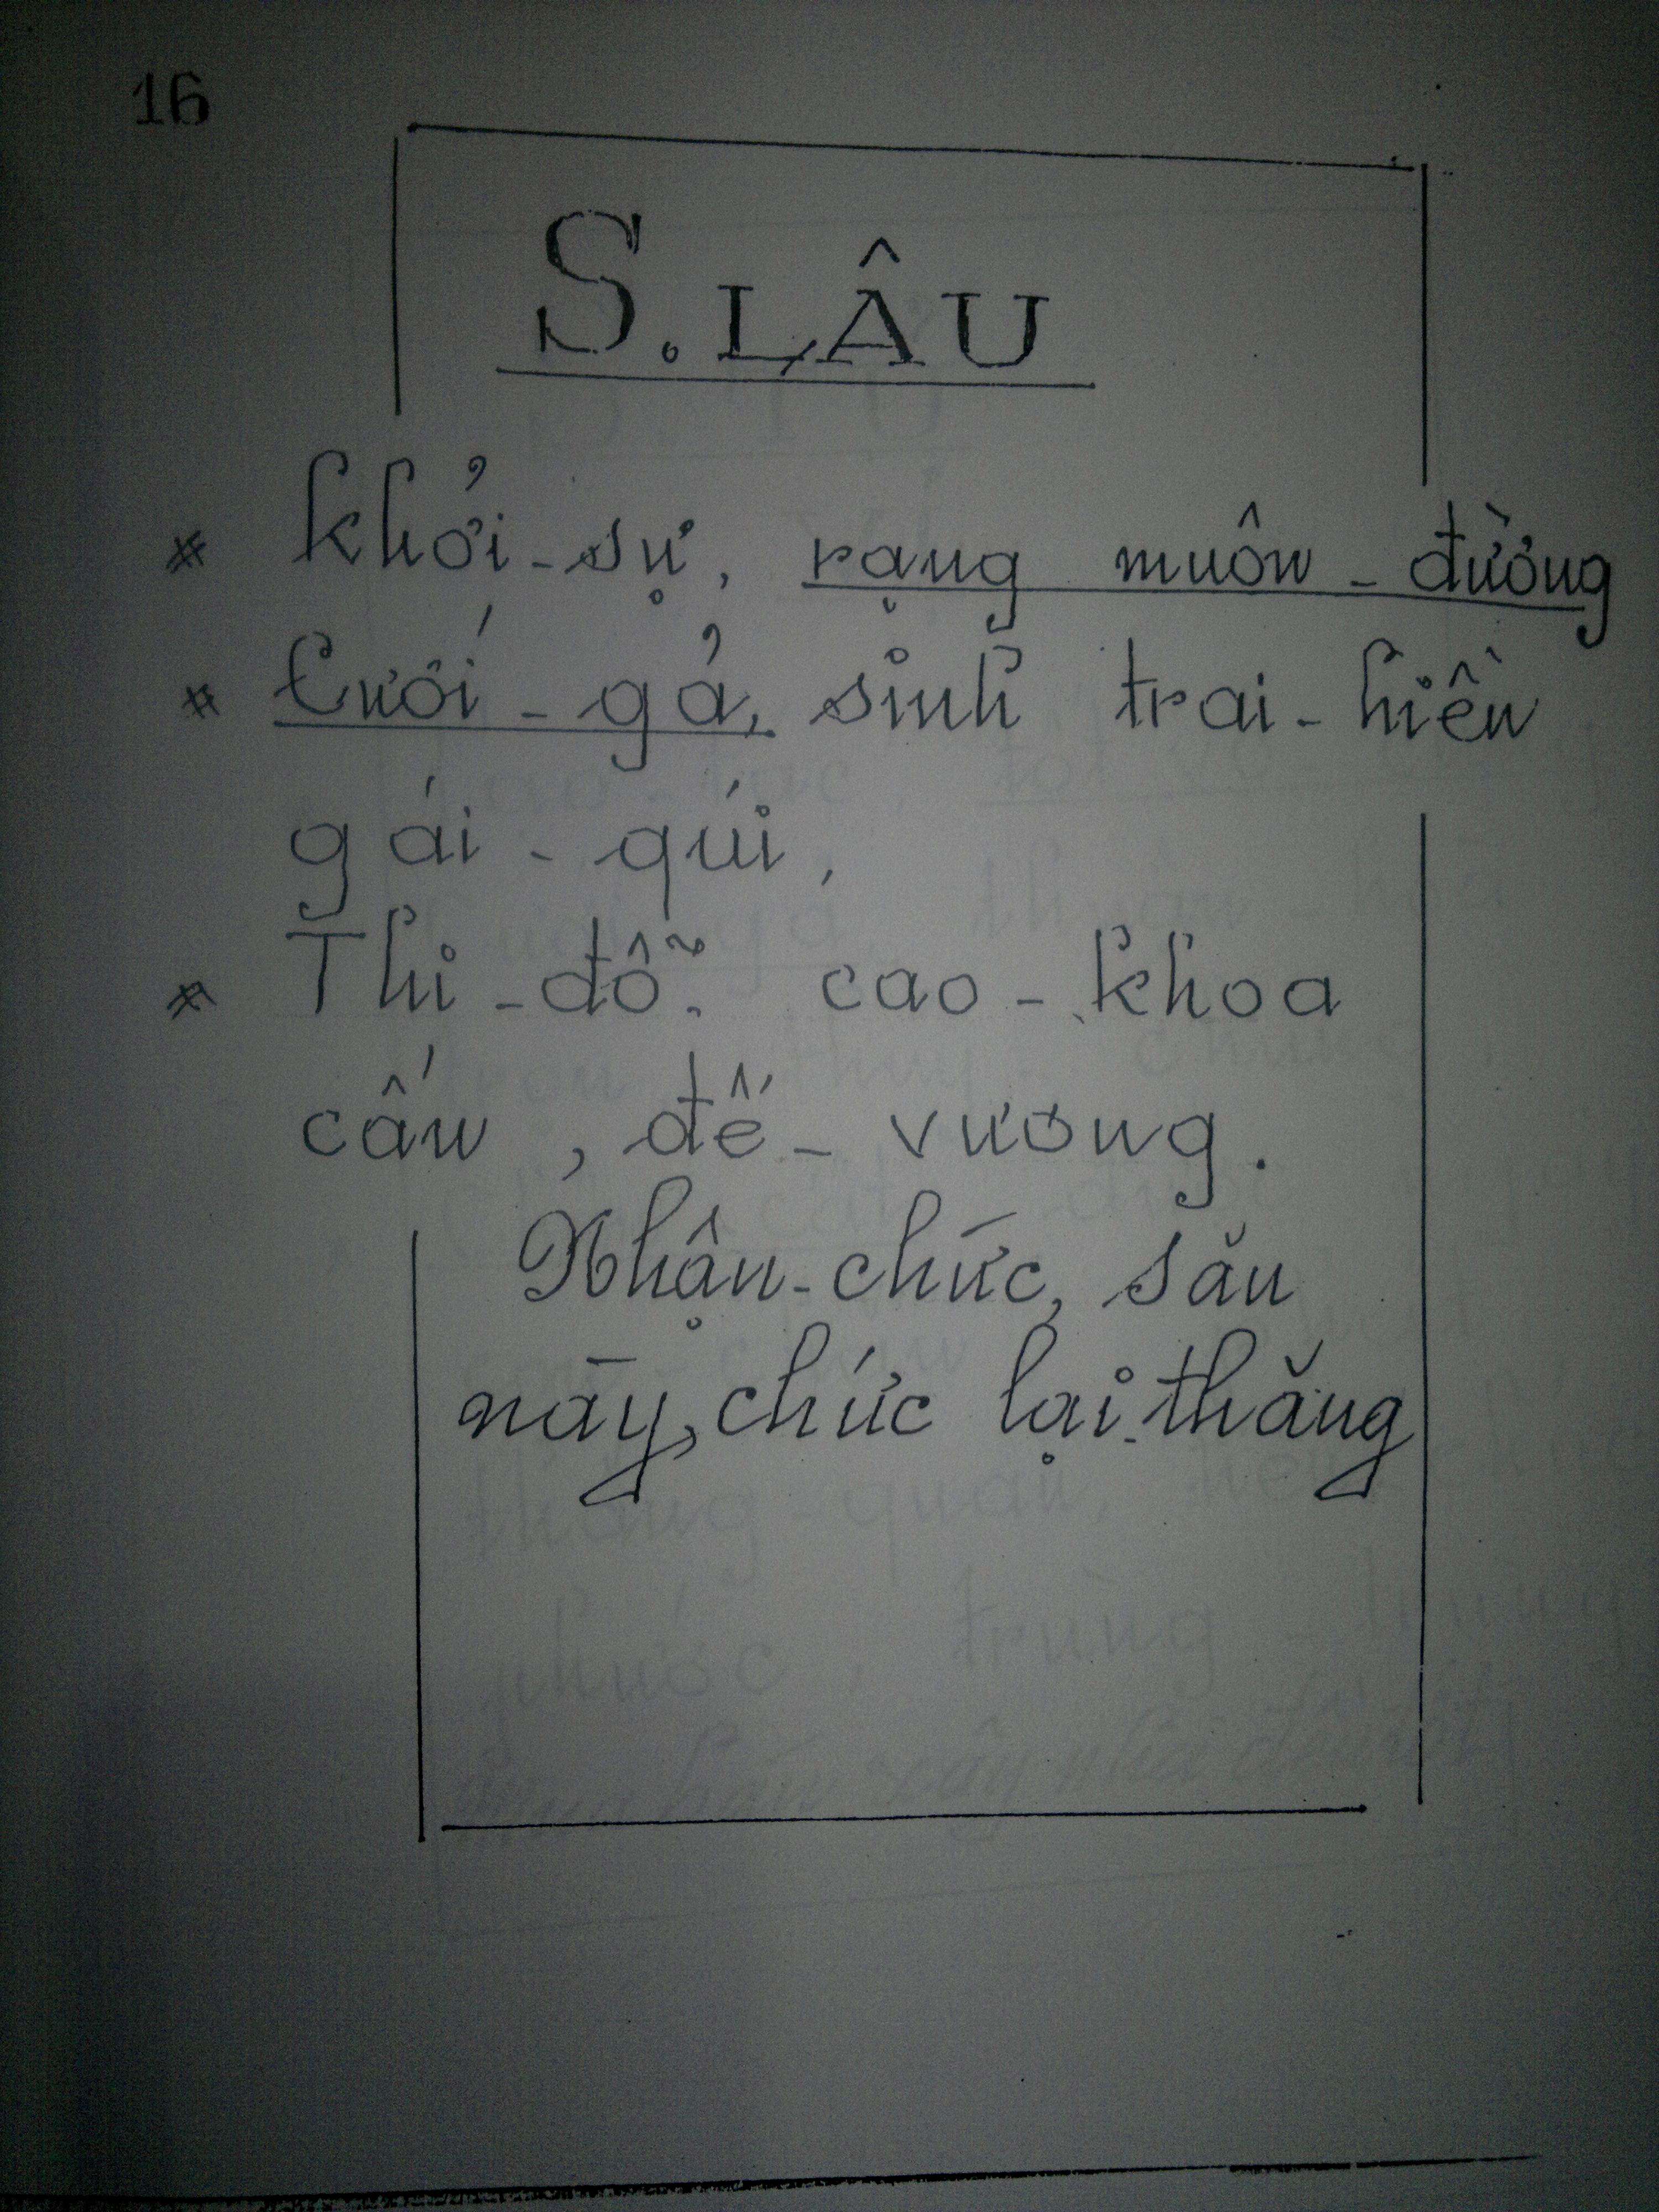 16
S. LÂU
* Khởi-sự, rạng muôn-đường
* Cưới-gả, sinh trai-hiền
gái-qúi,
* Thi-đỗ. cao-khoa
cấn, đế-vương.
Nhận-chức, săn
này, chức lại-thăng